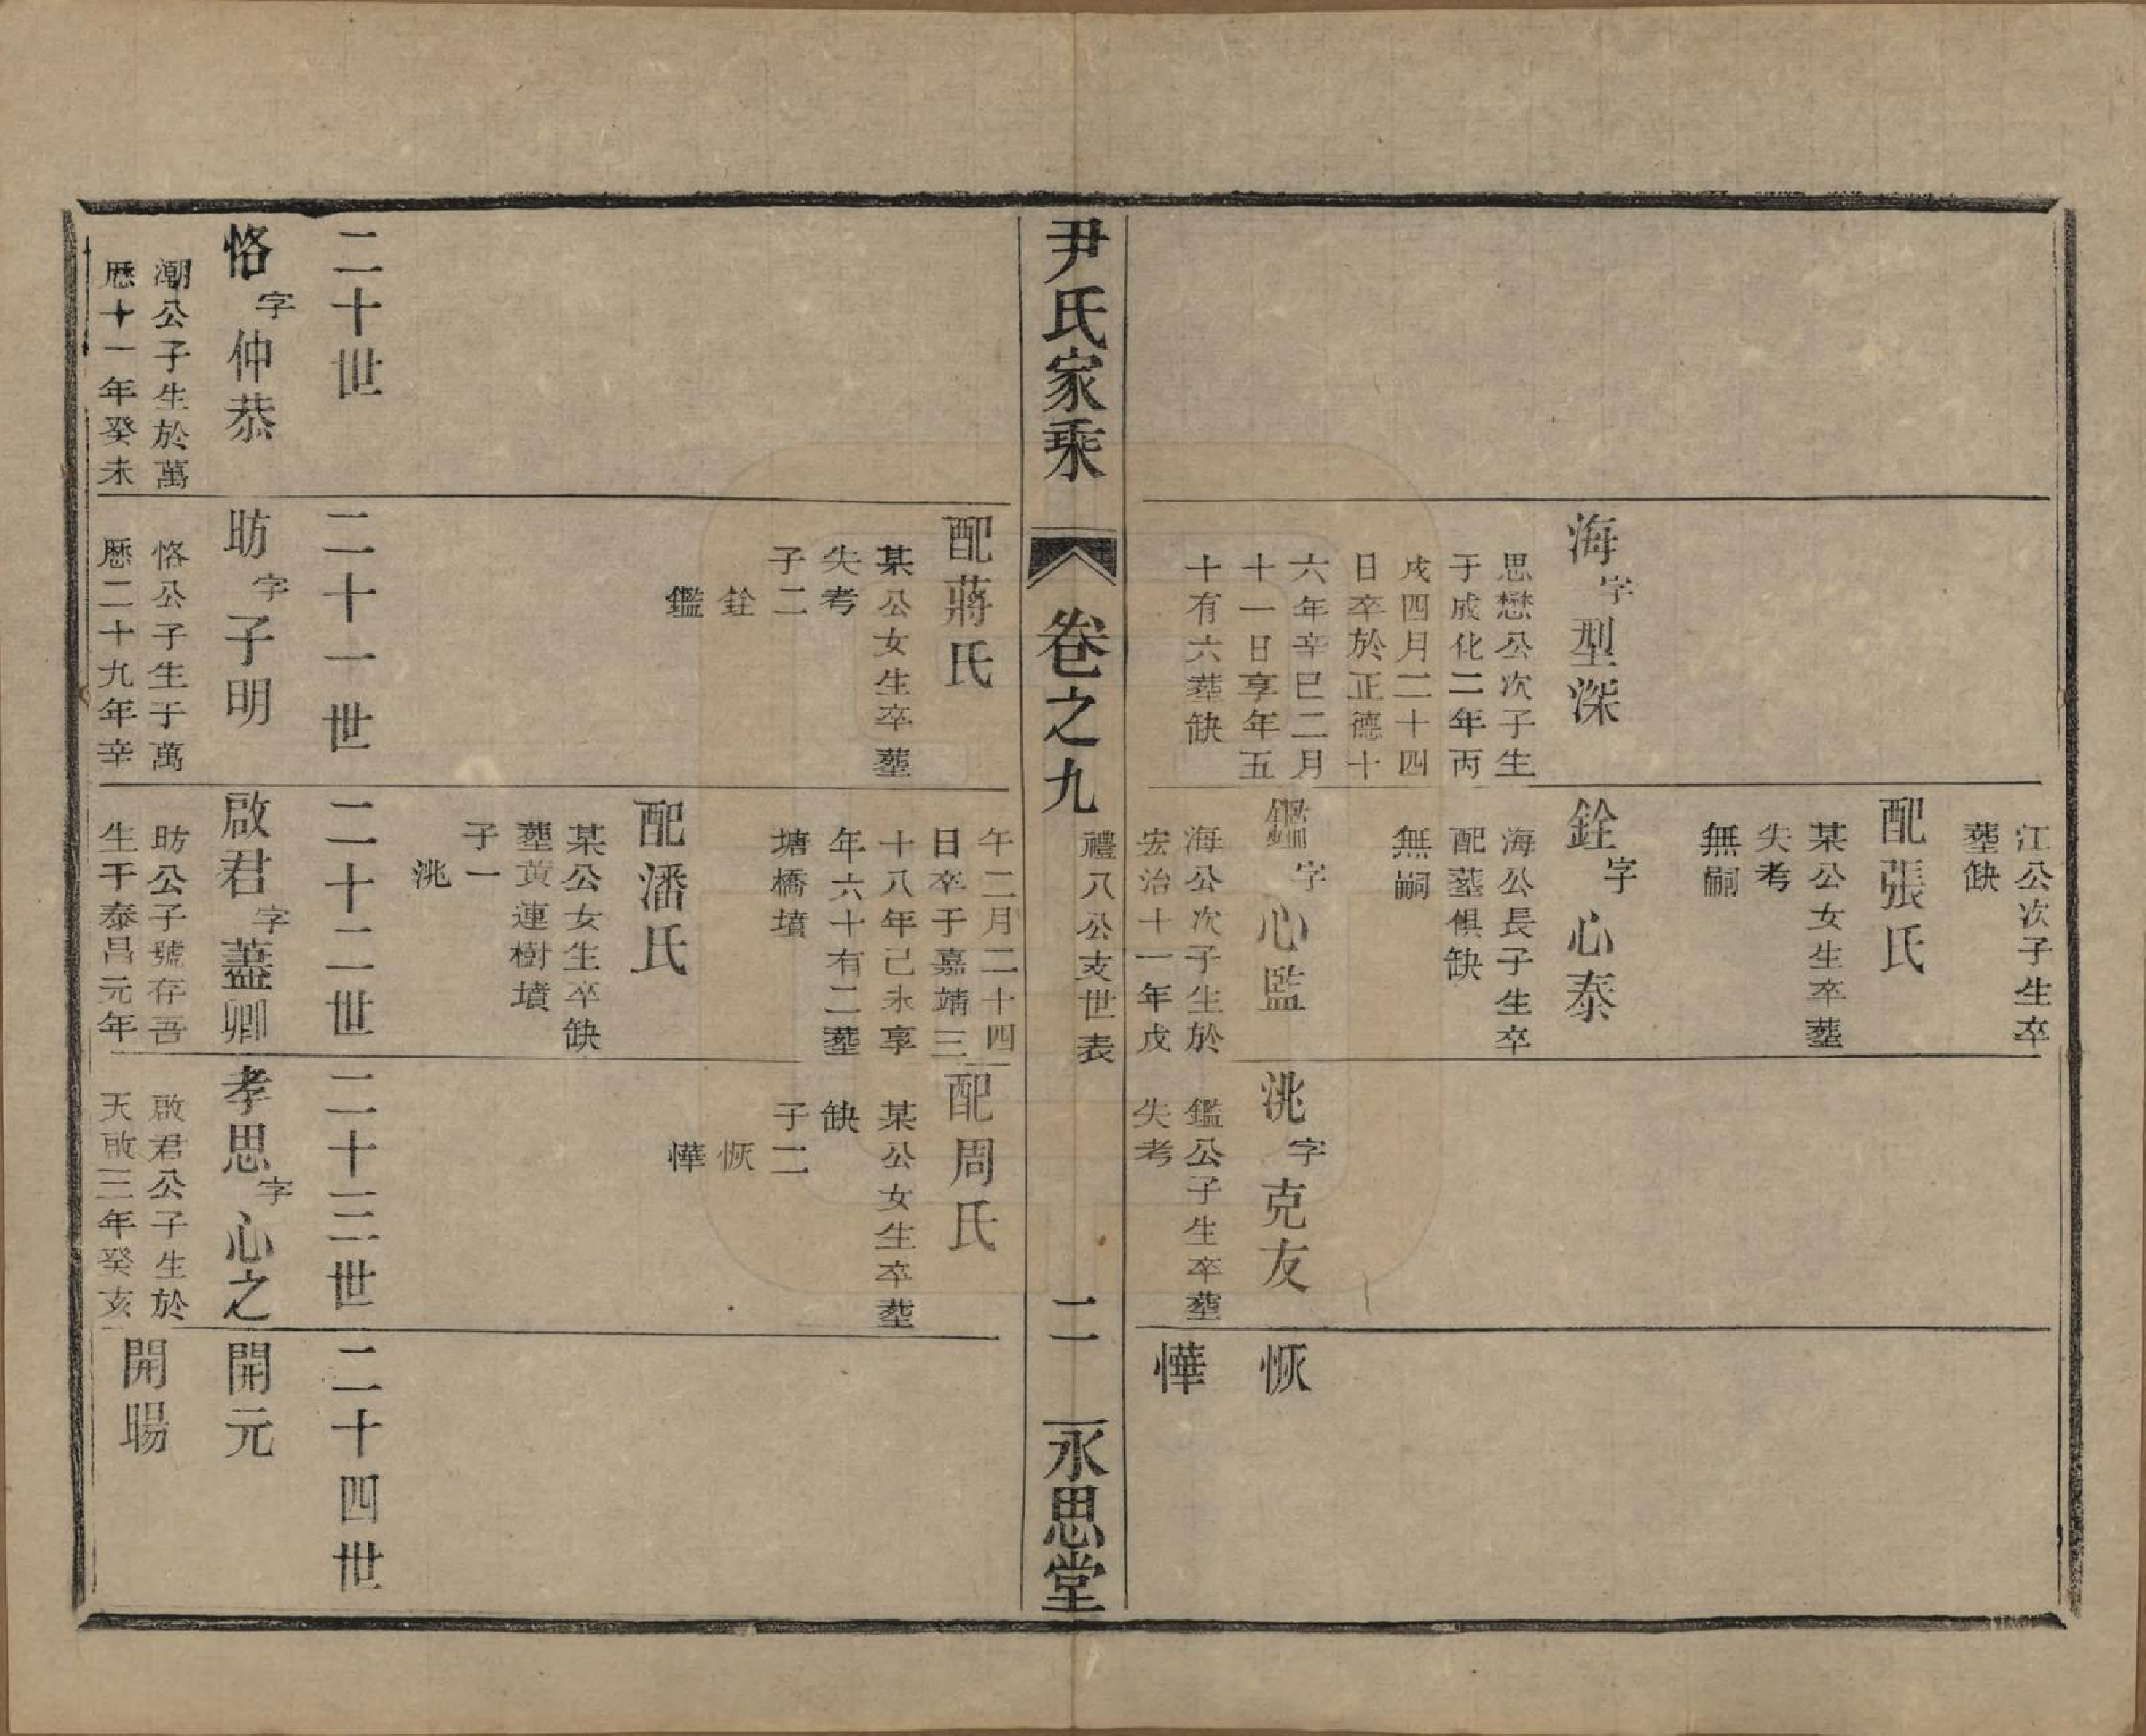 海字型深
思懋公次子生
于成化二年丙
戌四月二十四
日卒於正德十
六年辛巳二月
十一日享年五
十有六葬缺
江公次子生卒
葬缺
配張氏
某公女生卒葬
失考
無嗣
銓字心泰
海公長子生卒
配墓俱缺
無嗣
鑑字心監
海公次子生於
宏治十一年戊
洮字克友
鑑公子生卒葬
失考
恢
懂
尹氏家乘
卷之九
禮八公支世表
二
永思堂
配蔣氏
某公女生卒葬
失考
子二
銓
鑑
午二月二十四
日卒于嘉靖三
十八年己未享
年六十有二葬
塘橋墳
配潘氏
某公女生卒缺
葬黃連樹墳
子一
洮
配周氏
某公女生卒葬
缺
子二
恢
懂
二十世
恪字仲恭
潮公子生於萬
歷十一年癸未
二十一世
昉字子明
恪公子生于萬
歷二十九年辛
二十二世
啟君字藎卿
昉公子號存吾
生于泰昌元年
二十三世
孝思字心之
啟君公子生於
天啟三年癸亥
二十四世
開元
開暘